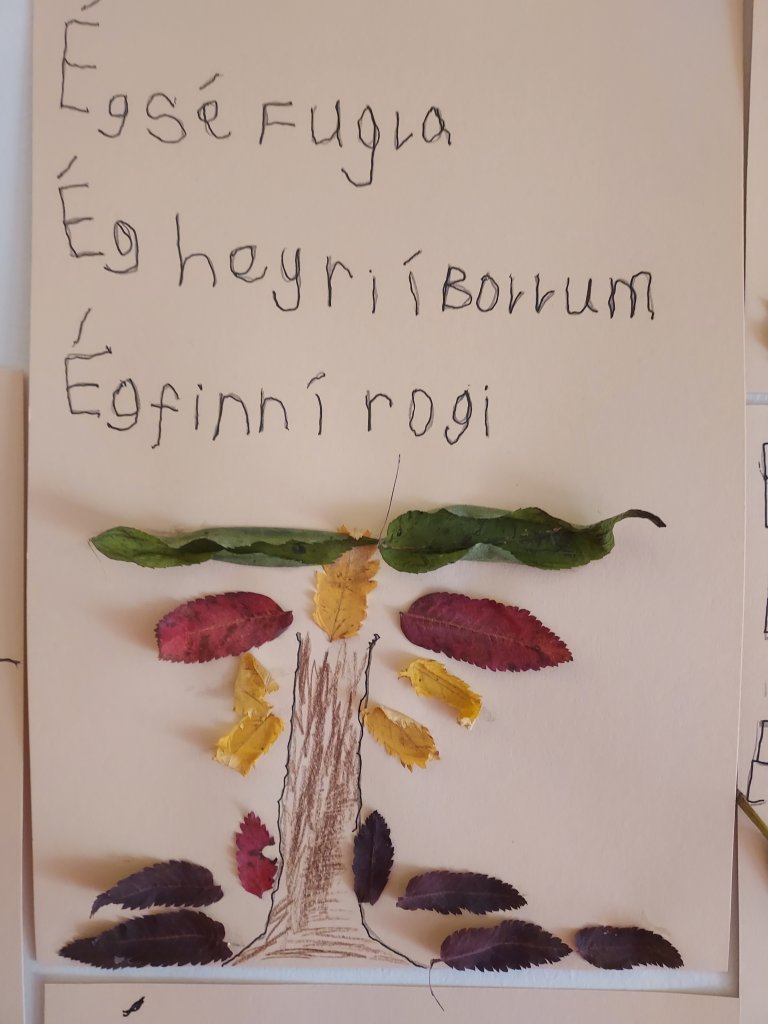 Ég sé Fugla
Ég heyri í Börrum
Ég finn í rogi